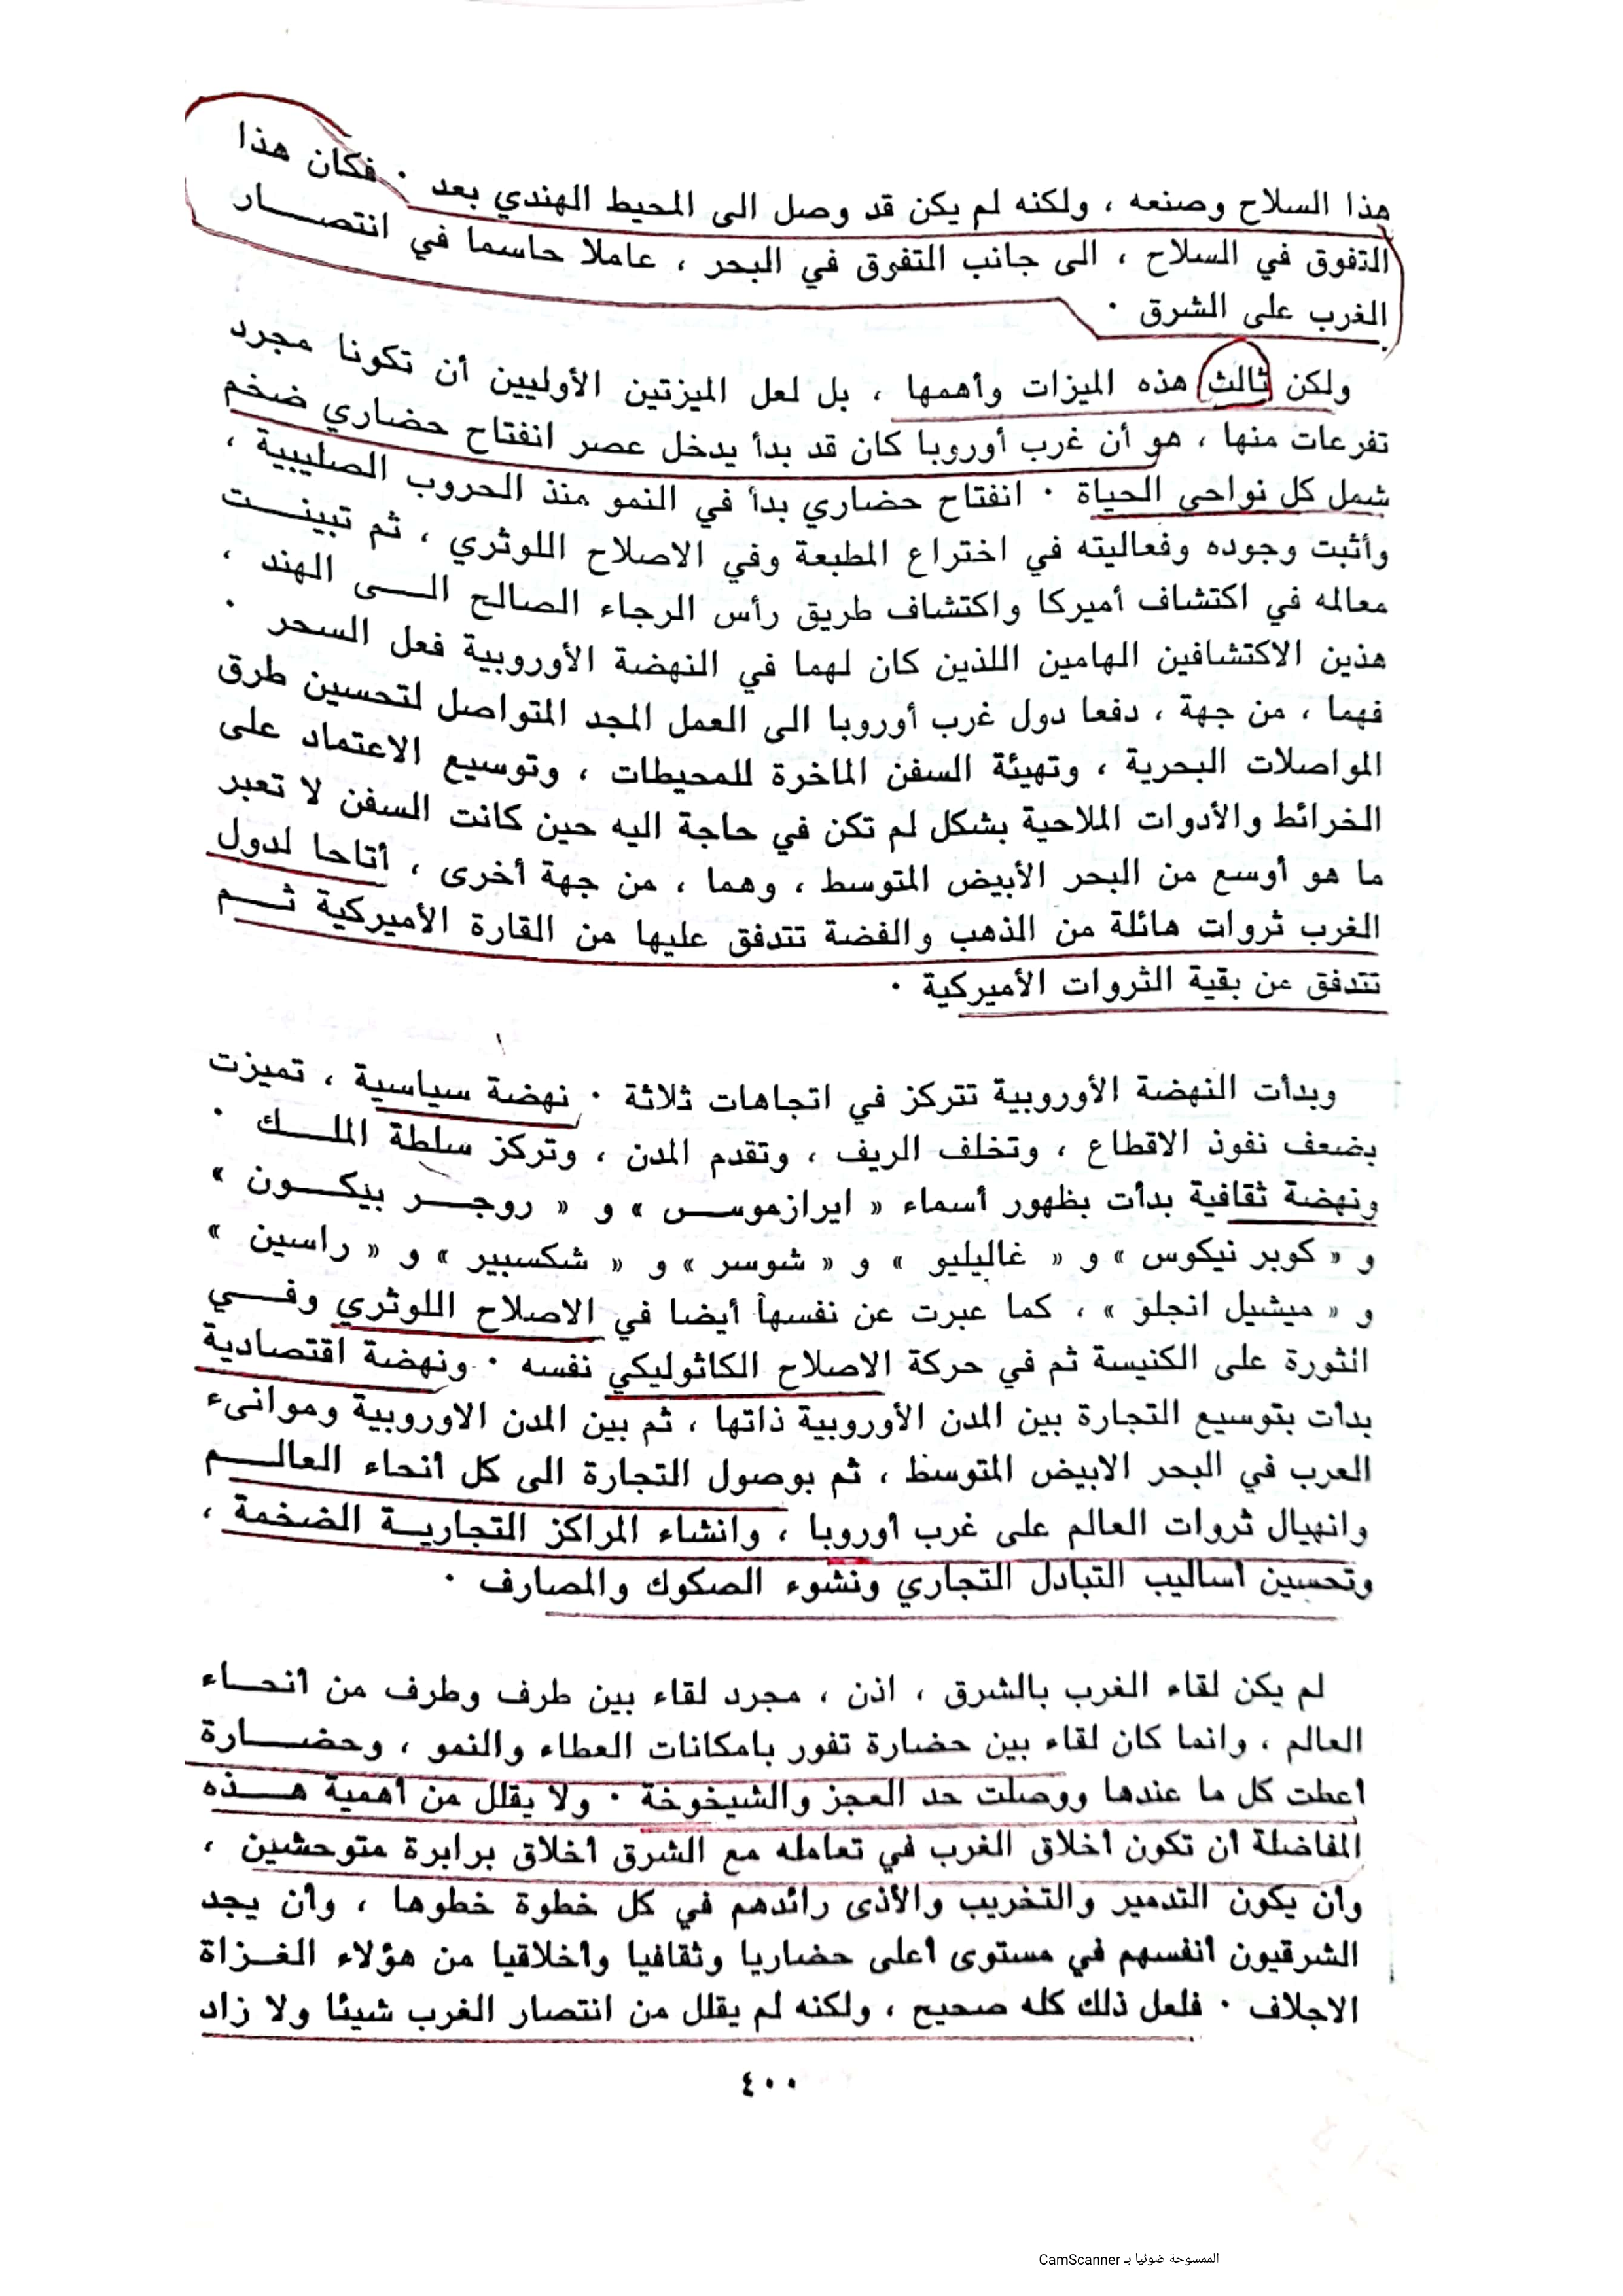 هذا السلاح وصنعه ، ولكنه لم يكن قد وصل الى المحيط الهندي بعد . فكان هذا
التفوق في السلاح ، الى جانب التفوق في البحر ، عاملا حاسما في انتصــار
الغرب على الشرق .
ولكن ثالث هذه الميزات وأهمها ، بل لعل الميزتين الأوليين أن تكونا مجرد
تفرعات منها ، هو أن غرب أوروبا كان قد بدأ يدخل عصر انفتاح حضاري ضخم
شمل كل نواحي الحياة . انفتاح حضاري بدأ في النمو منذ الحروب الصليبية ،
وأثبت وجوده وفعاليته في اختراع المطبعة وفي الاصلاح اللوثري ، ثم تبينــت
معالمه في اكتشاف أميركا واكتشاف طريق رأس الرجاء الصالح الــى الهند ،
هذين الاكتشافين الهامين اللذين كان لهما في النهضة الأوروبية فعل السحر .
فهما ، من جهة ، دفعا دول غرب أوروبا الى العمل المجد المتواصل لتحسين طرق
المواصلات البحرية ، وتهيئة السفن الماخرة للمحيطات ، وتوسيع الاعتماد على
الخرائط والأدوات الملاحية بشكل لم تكن في حاجة اليه حين كانت السفن لا تعبر
ما هو أوسع من البحر الأبيض المتوسط ، وهما ، من جهة أخرى ، أتاحا لدول
الغرب ثروات هائلة من الذهب والفضة تتدفق عليها من القارة الأميركية ثــم
تتدفق عن بقية الثروات الأميركية .
وبدأت النهضة الأوروبية تتركز في اتجاهات ثلاثة . نهضة سياسية ، تميزت
بضعف نفوذ الاقطاع ، وتخلف الريف ، وتقدم المدن ، وتركز سلطة الملــك .
ونهضة ثقافية بدأت بظهور أسماء « ايرازموســس » و « روجــر بيكــون »
و « كوبر نيكوس » و « غاليليو » و « شوسر » و « شكسبير » و « راسين »
و « ميشيل انجلو » ، كما عبرت عن نفسها أيضا في الاصلاح اللوثري وفــي
الثورة على الكنيسة ثم في حركة الاصلاح الكاثوليكي نفسه . ونهضة اقتصادية
بدأت بتوسيع التجارة بين المدن الأوروبية ذاتها ، ثم بين المدن الاوروبية وموانىء
العرب في البحر الابيض المتوسط ، ثم بوصول التجارة الى كل أنحاء العالــم
وانهيال ثروات العالم على غرب أوروبا ، وانشاء المراكز التجاريــة الضخمة ،
وتحسين أساليب التبادل التجاري ونشوء الصكوك والمصارف .
لم يكن لقاء الغرب بالشرق ، اذن ، مجرد لقاء بين طرف وطرف من أنحــاء
العالم ، وانما كان لقاء بين حضارة تفور بامكانات العطاء والنمو ، وحضــارة
أعطت كل ما عندها ووصلت حد العجز والشيخوخة . ولا يقلل من أهمية هــذه
المفاضلة أن تكون أخلاق الغرب في تعامله مع الشرق أخلاق برابرة متوحشين ،
وأن يكون التدمير والتخريب والأذى رائدهم في كل خطوة خطوها ، وأن يجد
الشرقيون أنفسهم في مستوى أعلى حضاريا وثقافيا وأخلاقيا من هؤلاء الغــزاة
الاجلاف . فلعل ذلك كله صحيح ، ولكنه لم يقلل من انتصار الغرب شيئا ولا زاد
٤٠٠
الممسوحة ضوئيا بـ CamScanner